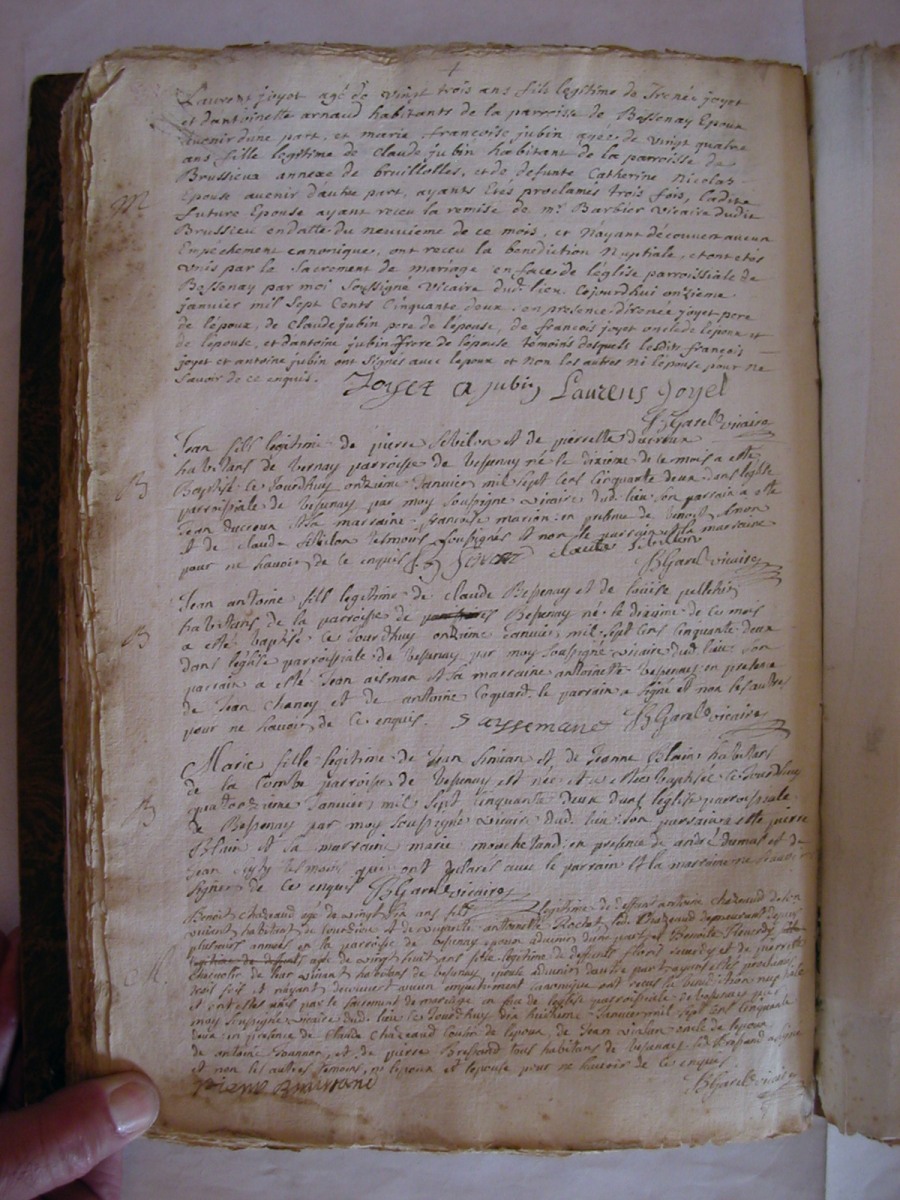 Laurent joyet agé de vingt trois ans fils legitime de Irenée joyet
et dantoinette arnaud habitants de la parroisse de Bessenay Epoux
avenir dune part, et marie francoise jubin agée de vingt quatre
ans fille legitime de claude jubin habitant de la parroisse de
Brussieux annexe de brullolles, et de defunte Catherine Nicolas
M
Epouse avenir d'autre part, ayants Etés proclamés trois fois, ladite
future Epouse ayant receu la remise de mr Barbier vicaire dudit
Brussieu en datte du neuvieme de ce mois, et Nayant découvert aucun
Empéchement canonique, ont receu la benediction Nuptiale, et ont etés
unis par le Sacrement de mariage en face de l'église parroissiale de
Bessenay par moi Soussigné vicaire dud. lieu Cejourdhui onzieme
janvier mil Sept Cents Cinquante deux. en presence direnée joyet pere
de l'époux, de Claude jubin pere de l'épouse, de francois joyet oncle de lepoux et
de l'épouse, et dantoine jubin frere de l'épouse témoins desquels lesdits françois
joyet et antoine jubin ont Signés avec lepoux et Non les autres ni lépouse pour ne
Savoir de ce enquis.
Joyet a jubin Laurens Joyet
B Garel vicaire
Jean fils legitime de pierre Sebilon et de pierrette ducreux
habitans de Bernay parroisse de Bessenay né le dixieme de ce mois a este
B
Baptisé ce Jourdhuy onzieme Janvier mil Sept Cens Cinquante deux dans leglise
parroissiale de Bessenay par moy Soussigne vicaire dud. lieu son parrain a esté
Jean ducreux et sa marraine francoise marion en presence de benoist
et de Claude Sebilon temoins Soussignés et non le parrain et la marraine
pour ne scavoir de ce enquis
claude Sebilon
B Garel vicaire
Jean antoine fils legitime de claude Bessenay et de louise pelletier
habitans de la parroisse de Bessenay né le dixieme de ce mois
B
a esté baptisé ce Jourdhuy onzieme Janvier mil Sept Cens Cinquante deux
dans leglise parroissiale de Bessenay par moy Soussigne vicaire dud. lieu son
parrain a esté Jean aisman et sa marraine antoinette Bessenay en presence
de Jean Chaney et de antoine Coquard le parrain a signé et non les autres
pour ne scavoir de ce enquis. J ayssemane B Garel vicaire
Marie fille legitime de Jean Simean et de Jeanne Blain habitans
de la Combe parroisse de Bessenay est née et a este baptisée ce Jourdhuy
quatorzieme Janvier mil Sept Cinquante deux dans leglise parroissiale
B
de Bessenay par moy Soussigne vicaire dud. lieu son parrain a esté pierre
Blain et sa marraine marie mochetand en presence de andré dumas et de
Jean temoins qui ont declarés avec le parrain et la marraine ne scavoir
signer de ce enquis B Garel vicaire
Benoit Chazeaud agé de vingt six ans fils legitime de deffunt antoine Chazeaud de son
vivant habitant de et de vivante antoinette Rochet led. Chazeaud demeurant depuis
plusieurs années en la parroisse de Bessenay epoux advenir dune part et Benoite fleurdy
M
agée de vingt huit ans fille legitime de deffunts fleurdy et de pierrette
de leur vivant habitans de bessenay epouse advenir dautre part ayant estés proclamés
trois fois et nayant decouvert aucun empeschement canonique ont receus la benediction nuptiale
et ont estes unis par le Sacrement de mariage en face de leglise parroissiale de Bessenay par
moy Soussigne vicaire dud. lieu ce Jourdhuy dix huitieme Janvier mil Sept Cens Cinquante
deux en presence de Claude Chazeaud cousin de lepoux, de Jean oncle de lepoux
de antoine et de pierre Bressand tous habitans de Bessenay led. Bressand a signé
et non les autres temoins, ni lepoux et lepouse pour ne scavoir de ce enquis
B Garel vicaire